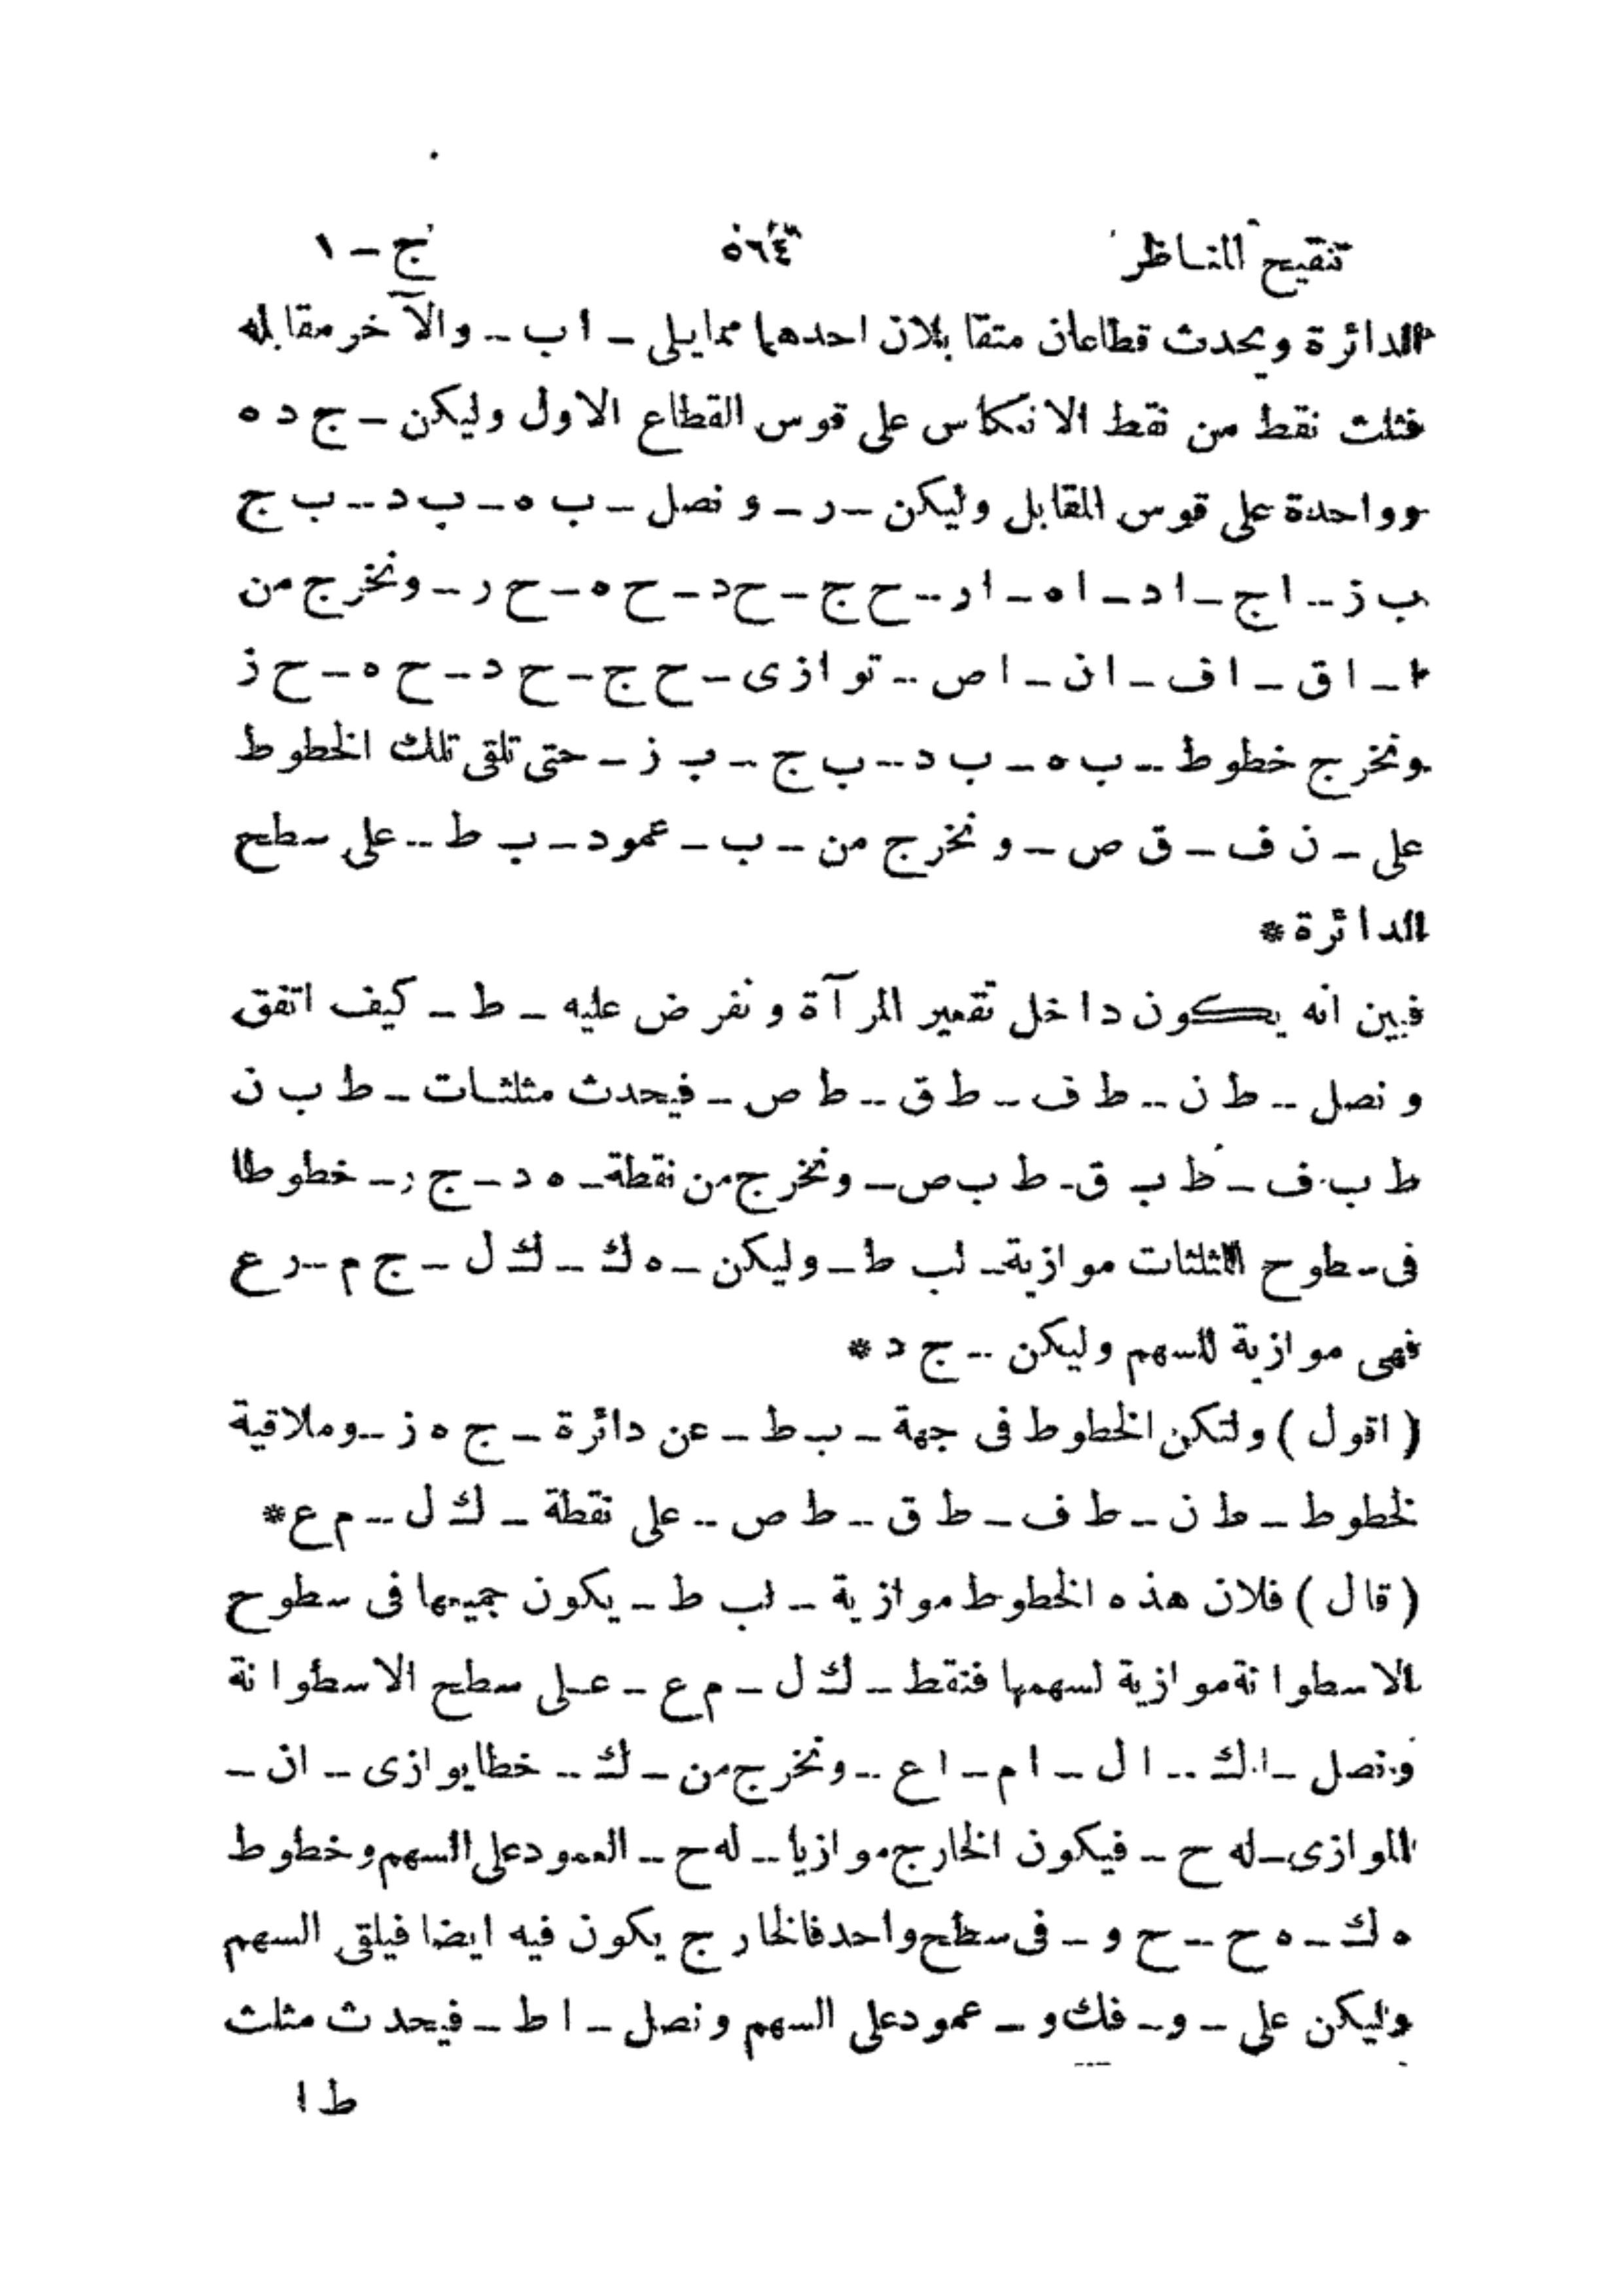 تنقيح المناظر ٥٦٤ ج – ١
الدائرة ويحدث قطاعان متقابلان احدهما ممايلى – ا ب – والآخر مقابله
فثلث نقط من نقط الانكاس على قوس القطاع الاول وليكن – ج د ه
وواحدة على قوس المقابل وليكن – ر – ونصل – ب ه – ب د – ب ج
ب ز – ا ج – ا د – ا ه – ا ر – ح ج – ح د – ح ه – ح ر – ونخرج من
ا – ا ق – ا ف – ا ن – ا ص – توازى – ح ج – ح د – ح ه – ح ز
ونخرج خطوط – ب ه – ب د – ب ج – ب ز – حتى تلقى تلك الخطوط
على – ن ف – ق ص – ونخرج من – ب – عمود – ب ط – على سطح
الدائرة *
فبين انه يكون داخل تقعير المرآة ونفرض عليه – ط – كيف اتفق
ونصل – ط ن – ط ف – ط ق – ط ص – فيحدث مثلثات – ط ب ن
ط ب ف – ط ب ق – ط ب ص – ونخرج من نقطة – ه د – ج ر – خطوطا
فى سطوح المثلثات موازية – لب ط – وليكن – ه ك – ك ل – ج م – ر ع
فهى موازية للسهم وليكن – ج د *
( اقول ) ولتكن الخطوط فى جهة – ب ط – عن دائرة – ج ه ز – وملاقية
لخطوط – ط ن – ط ف – ط ق – ط ص – على نقطة – ك ل – م ع *
( قال ) فلان هذه الخطوط موازية – لب ط – يكون جميعها فى سطوح
الاسطوانة موازية لسهمها فنقط – ك ل – م ع – على سطح الاسطوانة
ونصل – ا ك – ا ل – ا م – ا ع – ونخرج من – ك – خطا يوازى – ا ن –
الموازى – له ح – فيكون الخارج موازيا – له ح – العمود على السهم وخطوط
ه ك – ه ح – ح و – فى سطح واحد فالخارج يكون فيه ايضا فيلقى السهم
وليكن على – و – فك و – عمود على السهم ونصل – ا ط – فيحدث مثلث
ط ا